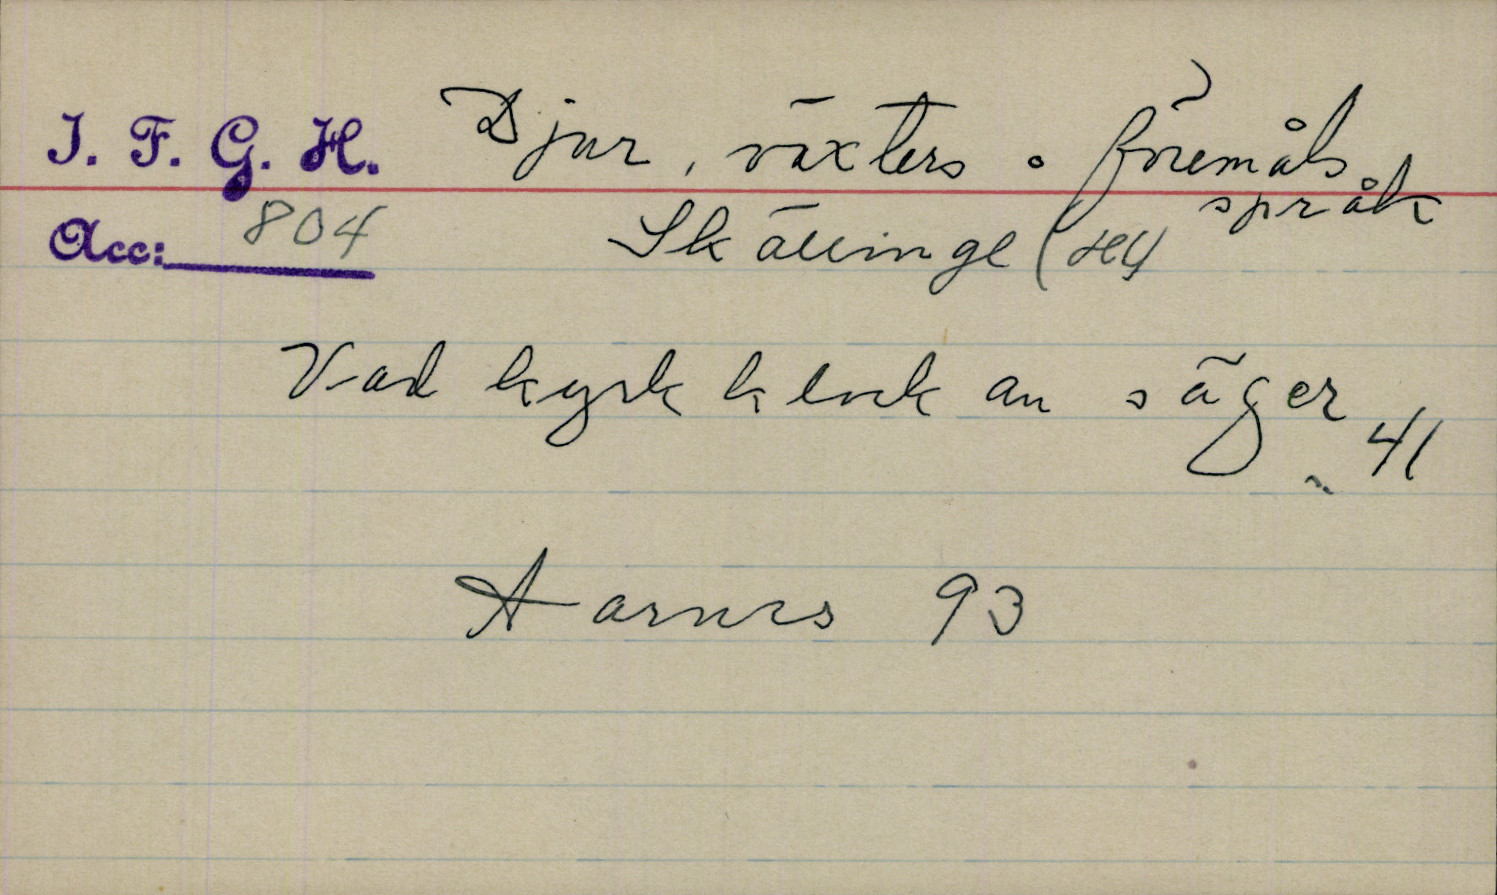 I. F. G. H. Djur, växters o föremåls
språk
Acc: 804 Skällinge (Hl)
Vad kyrkklockan säger
41
Aarnes 93